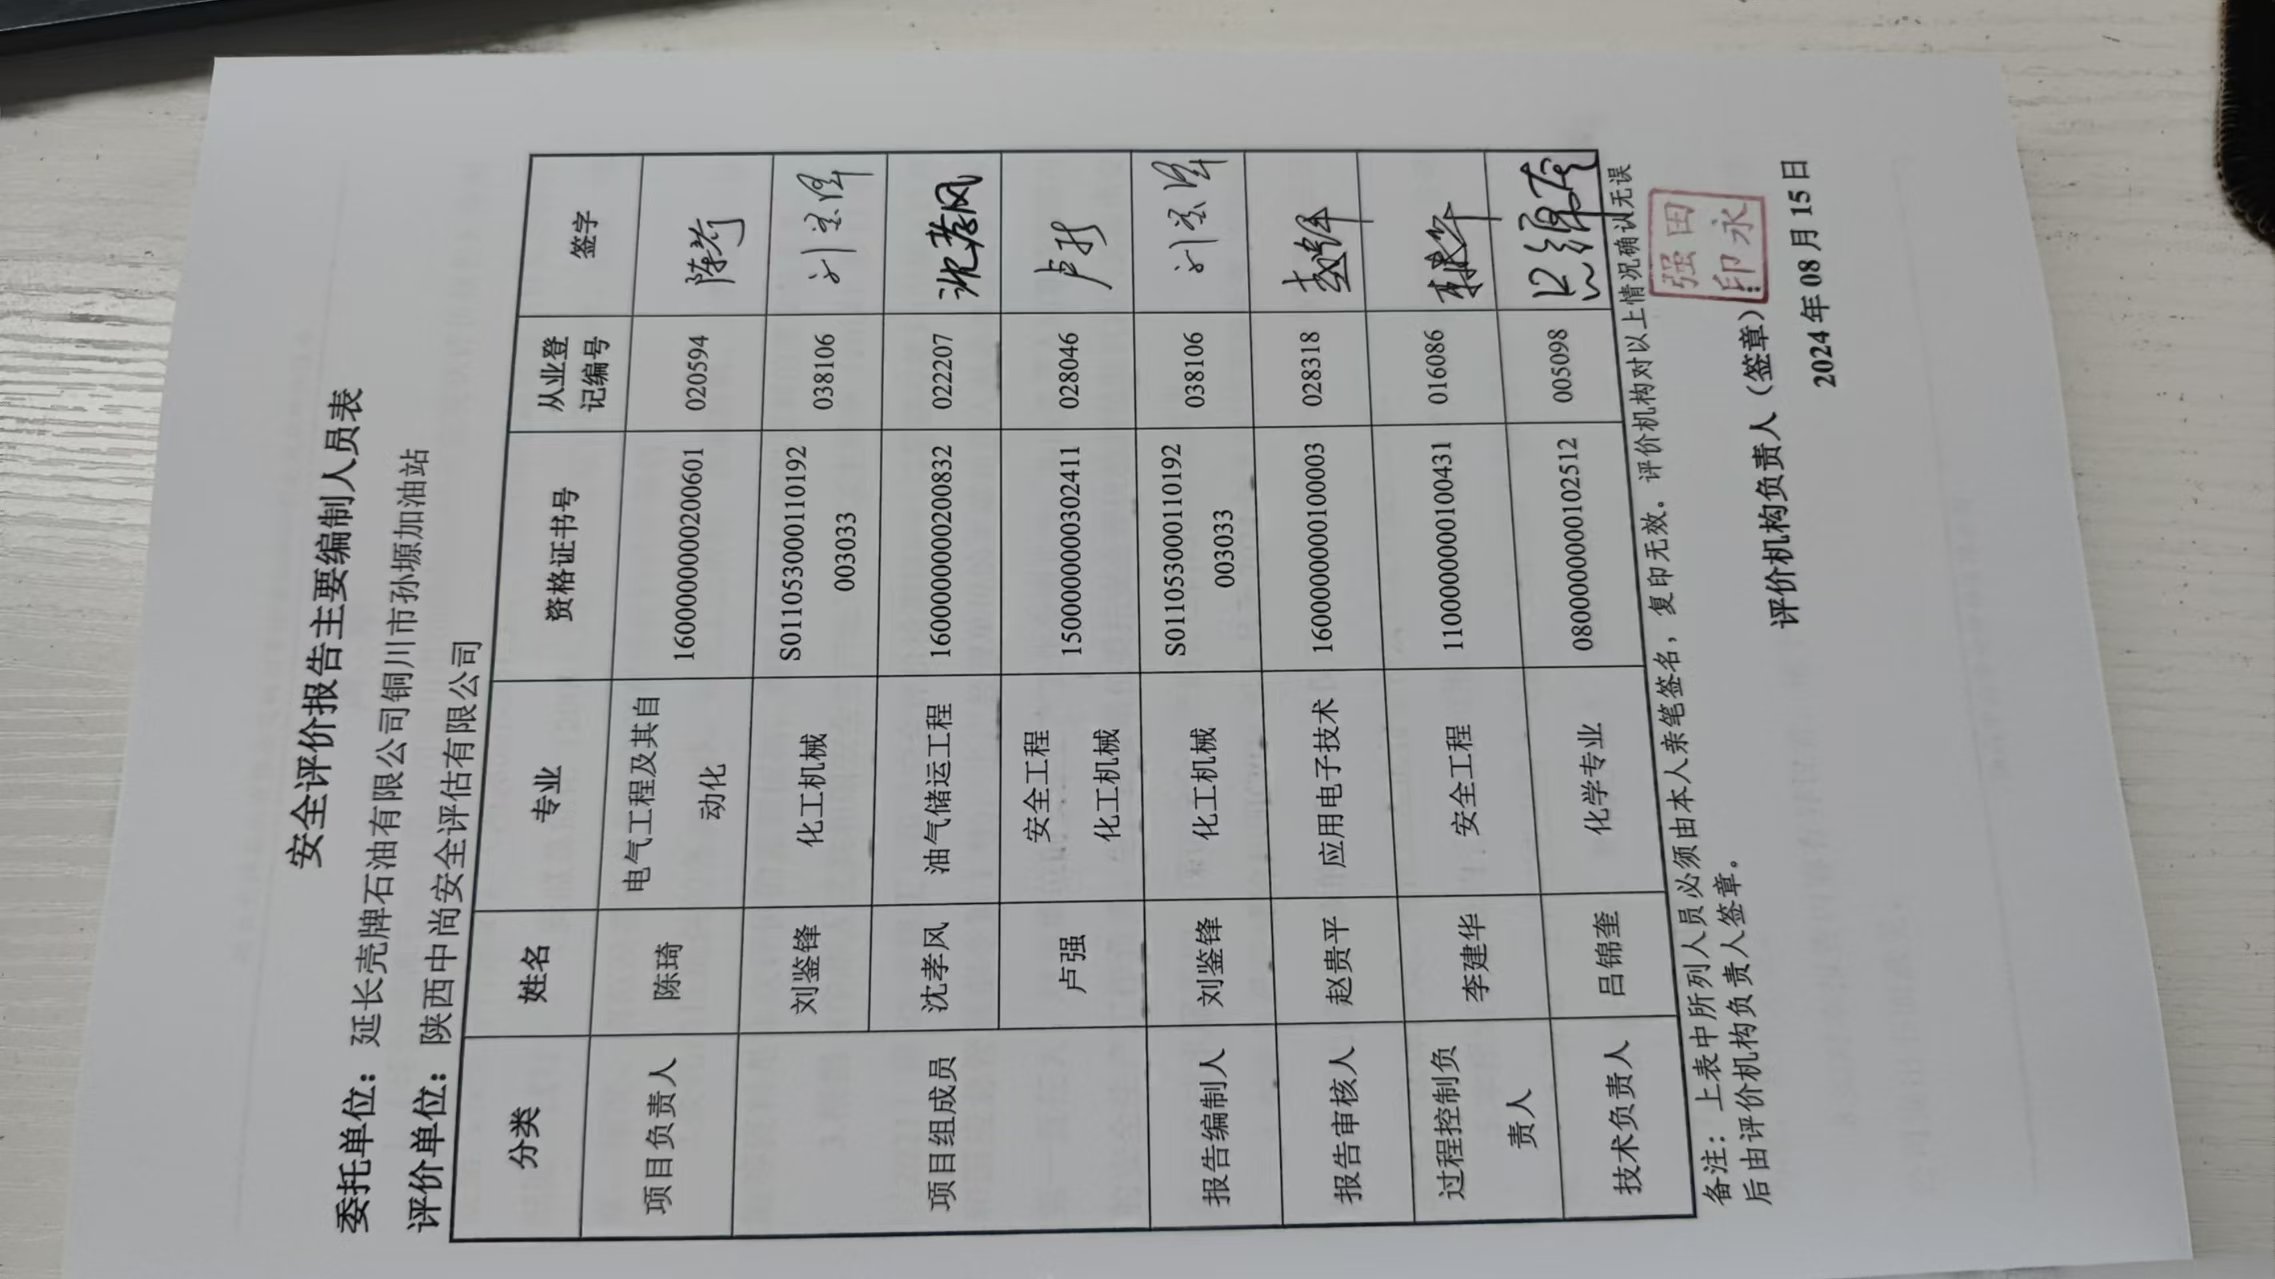 安全评价报告主要编制人员表
委托单位：延长壳牌石油有限公司铜川市孙塬加油站
评价单位：陕西中尚安全评估有限公司
分类 姓名 专业 资格证书号 从业登记编号 签字
项目负责人 陈琦 电气工程及其自动化 1600000000200601 020594
项目组成员 刘鉴锋 化工机械 S011053000110192003033 038106
沈孝风 油气储运工程 1600000000200832 022207 沈孝风
卢强 安全工程 化工机械 1500000000302411 028046 卢强
报告编制人 刘鉴锋 化工机械 S011053000110192003033 038106
报告审核人 赵贵平 应用电子技术 1600000000100003 028318
过程控制负责人 李建华 安全工程 1100000000100431 016086
技术负责人 吕锦奎 化学专业 0800000000102512 005098
备注：上表中所列人员必须由本人亲笔签名，复印无效。评价机构对以上情况确认无误
后由评价机构负责人签章。
评价机构负责人（签章）：
田永强印
2024年08月15日